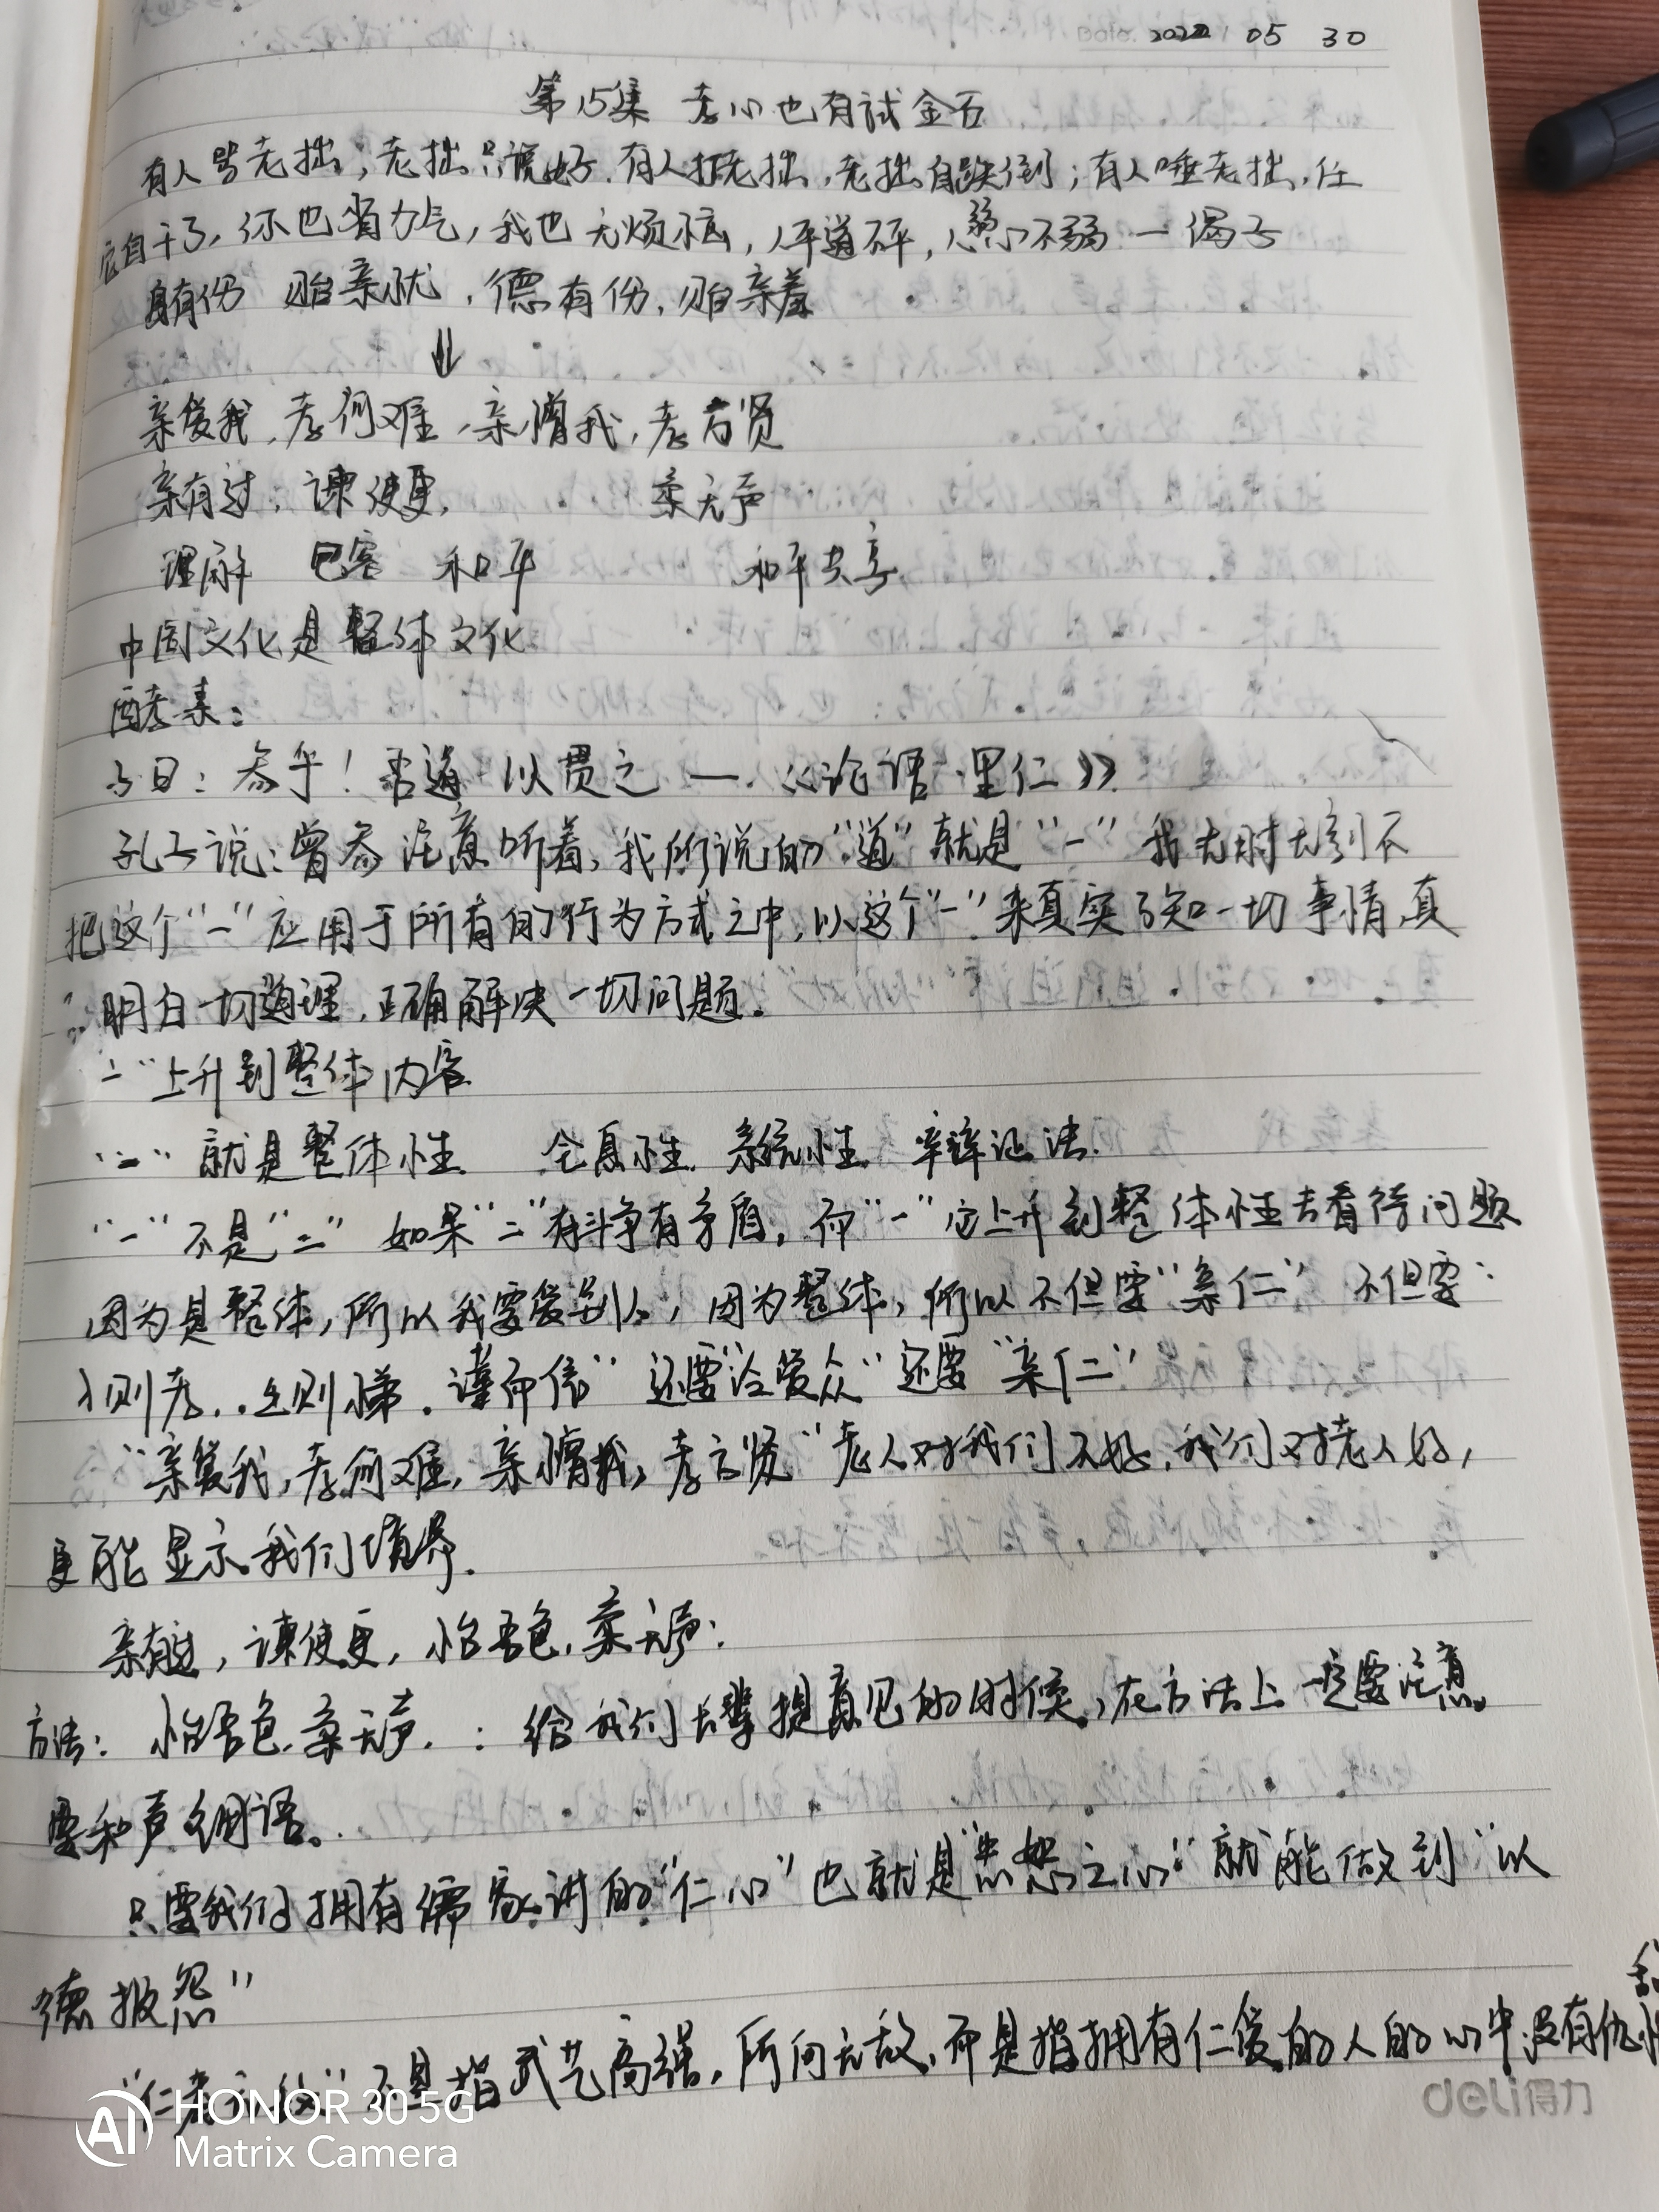 Date. 2022 05 30
第15集 孝心也有试金石
有人骂老拙,老拙只说好.有人打老拙,老拙自跌倒;有人唾老拙,任
它自干了,你也省力气,我也无烦恼, 一偈子
身有伤 贻亲忧,德有伤,贻亲羞
⇓
亲爱我,孝何难,亲憎我,孝方贤
亲有过,谏使更, 柔无声
理解 包容 和平 和平共享
中国文化是整体文化
酵素:
子曰:参乎!吾道一以贯之 —.《论语·里仁》
孔子说:曾参注意听着,我所说的"道"就是"一"我无时无刻不
把这个"一"应用于所有的行为方式之中,以这个"一"来真实了知一切事情,真
明白一切道理,正确解决一切问题。
"一"上升到整体内容
"一"就是整体性. 全息性. 系统性. 辩证法.
"一"不是"二" 如果"二"有斗争有矛盾,而"一"应上升到整体性去看待问题
因为是整体,所以我要爱别人,因为整体,所以不但要"亲仁" 不但要"
入则孝,.出则悌.谨而信" 还要"泛爱众"还要"亲仁"
"亲爱我,孝何难,亲憎我,孝方贤"老人对我们不好,我们对老人好,
更能显示我们境界.
亲有过,谏使更,怡吾色,柔无声:
方法: 怡吾色.柔无声.:给我们长辈提意见的时候,在方法上一定要注意。
要和声细语。
只要我们拥有儒家讲的"仁心"也就是"忠恕之心"就能做到"以
德报怨"
"仁者无敌"不是指武艺高强,所向无敌,而是指拥有仁爱的人的心中没有仇恨
deli得力
AI HONOR 30 5G
Matrix Camera